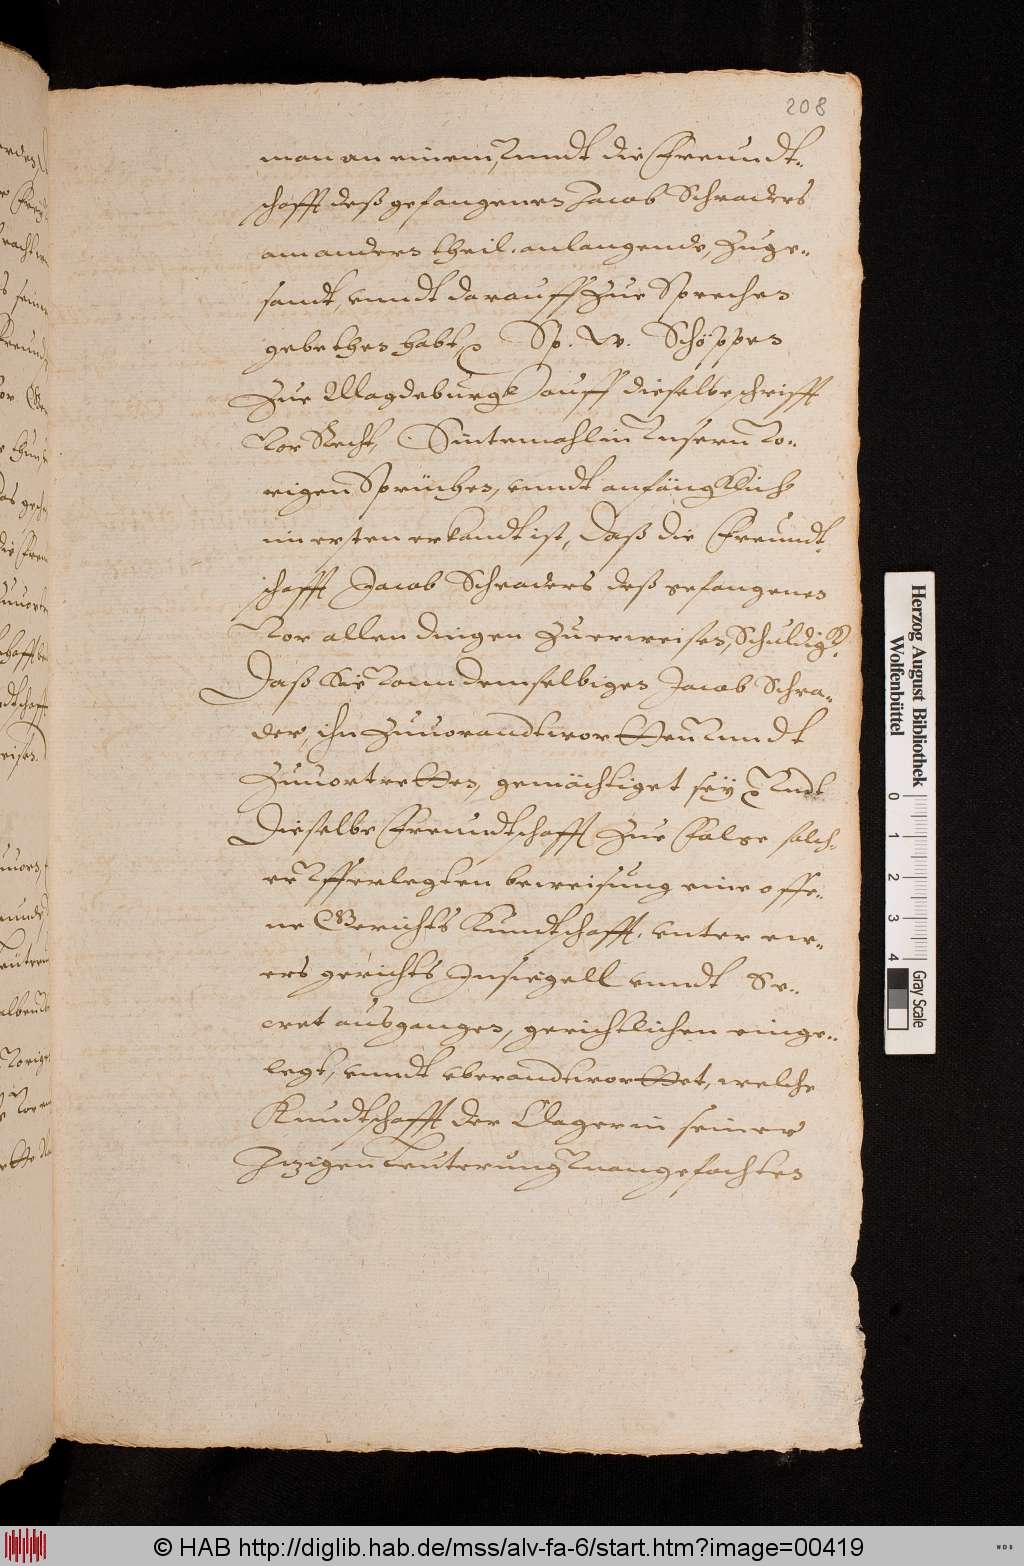 208
man an einem, vnndt die Freundt-
schafft deß gefangenen Jacob Schraders
am andern theil. anlangende, Zuge-
sandt, vnndt darauff Zue Sprechen
gebethen habt, Sp. W. Schöppen
Zue Magdeburgk auff dieselbe schrifft
Vor Recht, Sintemahl in Vnsern Vo-
rigen Sprüchen, vnndt anfängklich
im ersten erkandt ist, Daß die Freundt-
schafft Jacob Schraders deß gefangenen
Vor allen dingen Zuerweisen, Schuldigk
Daß Sie Vonn demselbigen Jacob Schra-
der, ihn Zuuorandtwortten Vnndt
Zuuortretten, gemächtiget sey Vndt
Dieselbe Freundtschafft Zue Folge solch-
er Vfferlegten beweisung eine offe-
ne Gerichts Kundtschafft, vnter ew-
ers gerichts Insiegell vnndt Se-
cret ausgangen, gerichtlichen einge-
legt, vnndt vberandtworttet, welche
Kundtschafft der Clager in seiner
Itzigen Leuterung Vnangefochten
Herzog August Bibliothek
Wolfenbüttel
0 1 2 3 4
Gray Scale
© HAB http://diglib.hab.de/mss/alv-fa-6/start.htm?image=00419